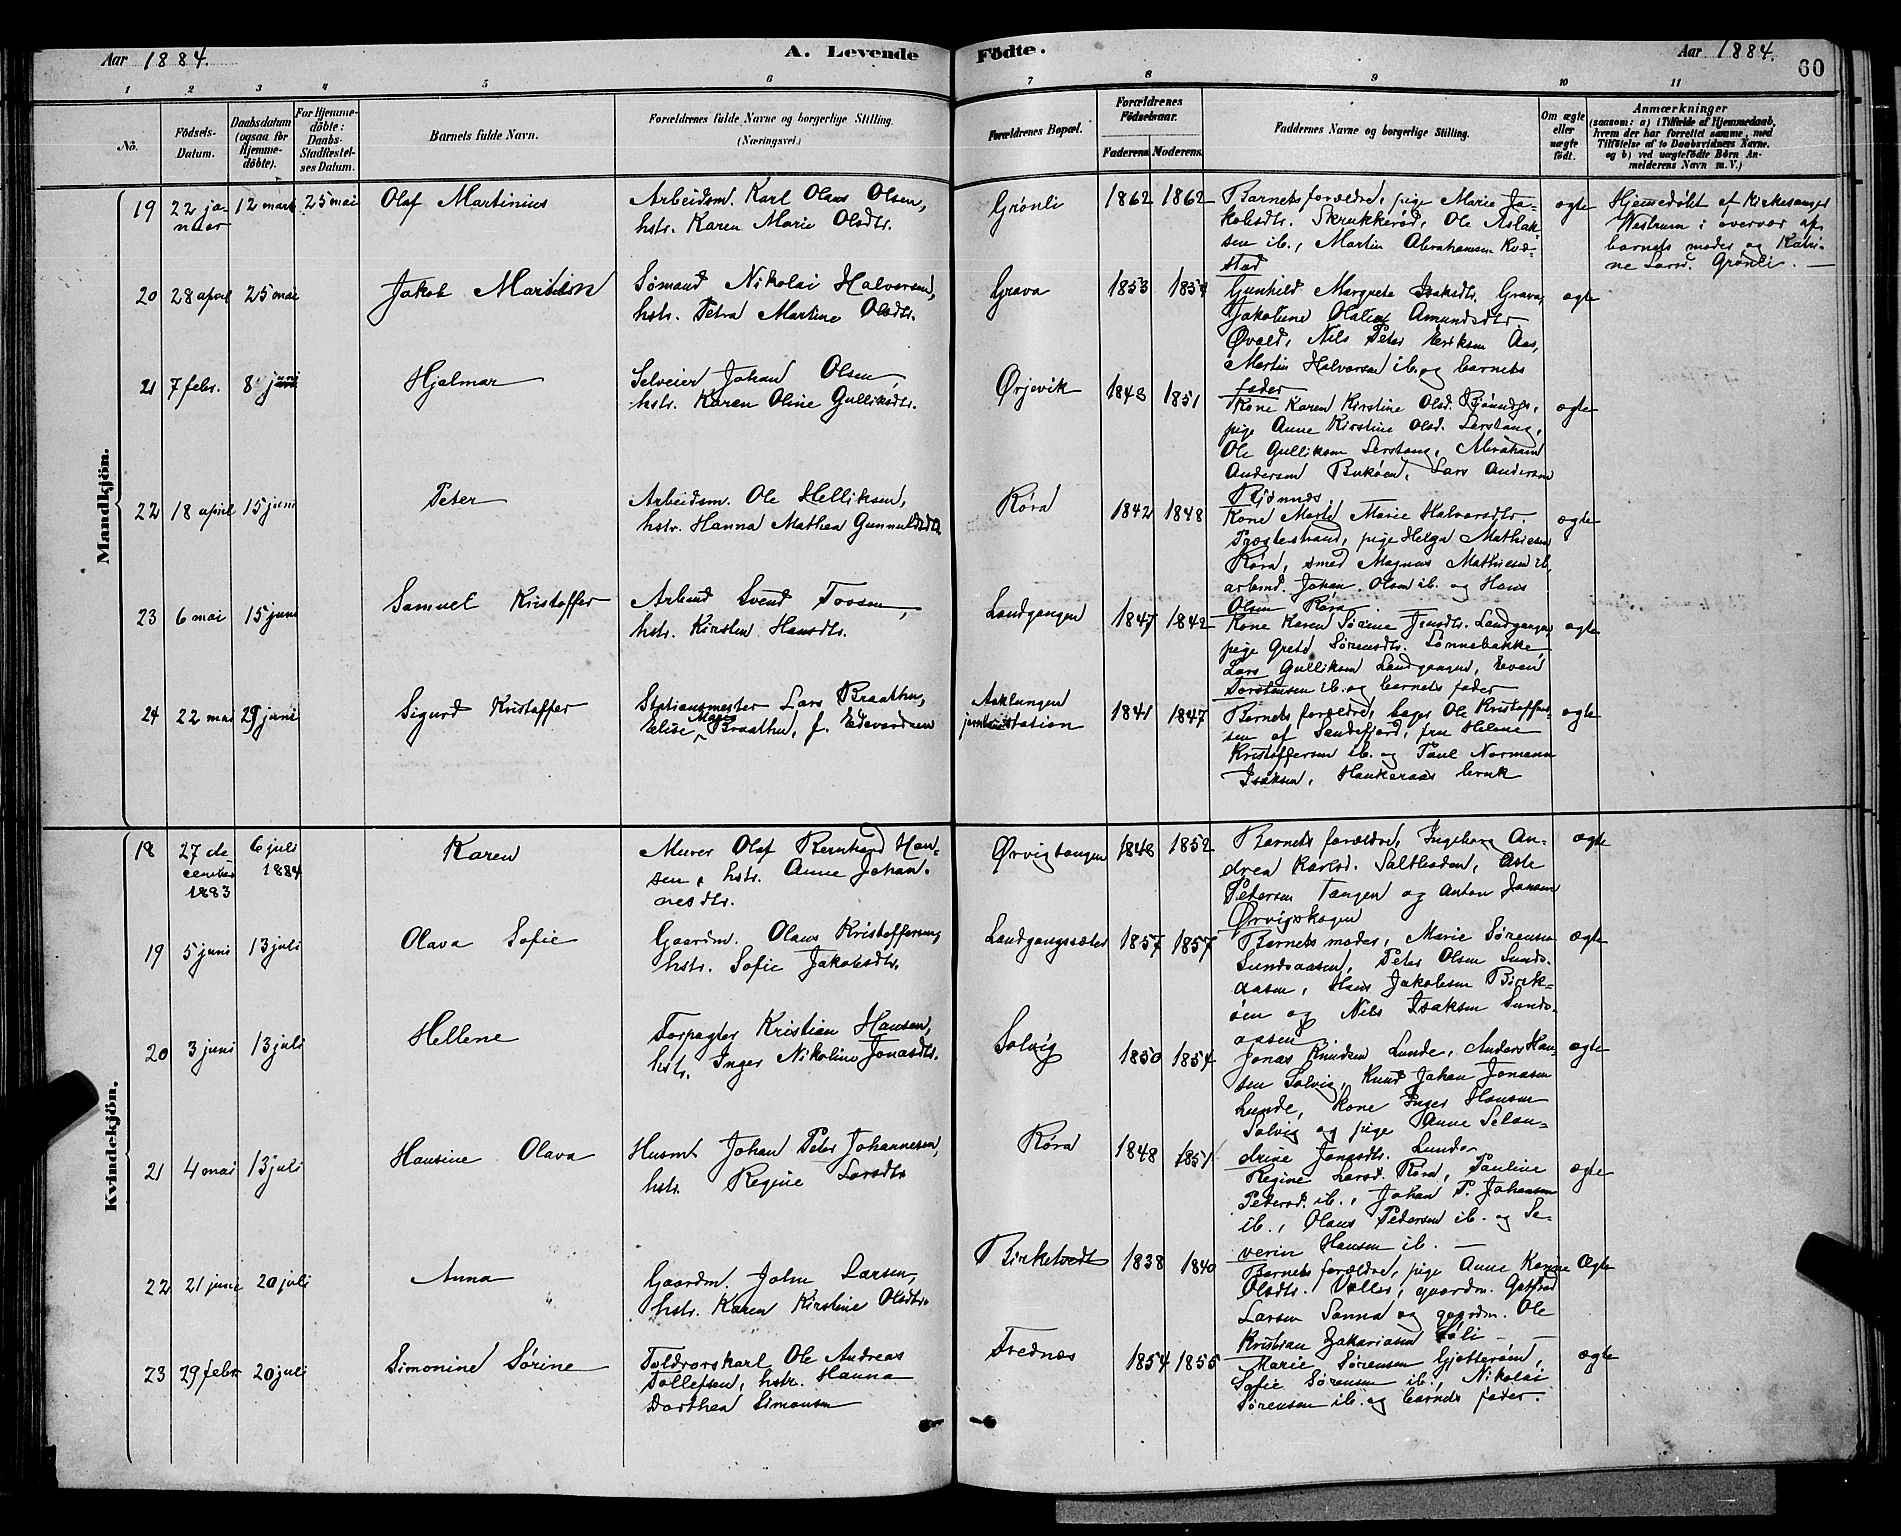 Aar 1884.
A. Levende Födte.
Aar 1884.
60
1 2 3 4 5 6 7 8 9 10 11
No.
Födsels-Datum.
Daabsdatum (ogsaa for Hjemme-döbte).
For Hjemme-döbte: Daabs-Stadfestel-ses Datum.
Barnets fulde Navn.
Forældrenes fulde Navne og borgerlige Stilling.
(Næringsvei.)
Forældrenes Bopæl.
Forældrenes Födselsaar.
Faderens. Moderens.
Faddernes Navne og borgerlige Stilling.
Om ægte eller uægte födt.
Anmærkninger
(saasom: a) i Tilfælde af Hjemmedaab, hvem der har forrettet samme, med Tilföielse af to Daabsvidners Navne. og b) ved uægtefödte Börn An-melderens Navn m. V.)
Mandkjön.
19 22 ja-nuar 12 mars 25 mai Olaf Martinius
Arbeidsm. Karl Olaus Olsen,
hstr. Karen Marie Olsdtr.
Grönli 1862 1862
Barnets forældre, pige Marie Ja-
kobsdtr. Skrukkeröd, Ole Aslak-
sen ib., Martin Abrahamsen Rød-
stad
ægte
Hjemedøbt af Kirkesanger
Westrum i overvær af
barnets moder og Kathi-
ne Larsd. Grönli. —
20 28 april 25 mai Jakob Martin
Sömand Nikolai Halvorsen,
hstr. Petra Martine Olsdtr.
Grava 1853 1854
Gunhild Margrete Isaksdtr. Grava,
Jakobine Olalia Amundsdtr.
Øvald, Nils Peter Eriksen Aas,
Martin Halvorsen ib. og barnets
fader
ægte
21 7 febr. 8 juni Hjalmar
Selveier Johan Olsen,
hstr. Karen Oline Gulliksdtr.
Ørjevik 1848 1851
Kone Karen Kirstine Olsd. Bjönnes,
pige Anne Kirstine Olsd. Lerstang,
Ole Gulliksen Lerstang, Abraham
Andersen Bukøen, Lars Andersen
Bjønnes
ægte
22 18 april 15 juni Peter
Arbeidsm. Ole Helliksen,
hstr. Hanna Mathea Gunnulfsdtr.
Röra 1842 1848
Kone Marte Marie Halvorsdtr.
Træsterstrand, pige Helga Mathiesen
Röra, smed Magnus Mathiesen ib,
arbmd. Johan Olsen ib. og Hans
Olsen Röra
ægte
23 6 mai 15 juni Samuel Kristoffer
Arbmd Svend Tovsen,
hstr. Kirsten Hansdtr.
Landgangen 1847 1842
Kone Karen Sörine Jensdtr. Landgangen
pige Grete Sörensdtr. Lønnebakke,
Lars Gulliksen Landgangen, Even
Torstensen ib. og barnets fader
ægte
24 22 mai 29 juni Sigurd Kristoffer
Stationsmester Lars Braathen,
Elise Marie Braathen, f. Edvardsen
Aaklungen
jernbanestation 1841 1847
Barnets forældre, bager Ole Kristoffer-
sen af Sandefjord, fru Helene
Kristoffersen ib. og Paul Normann
Isaksen, Haukeraas bruk
ægte
Kvindekjön.
18 27 de-cember 1883 6 juli 1884 Karen
Murer Olaf Bernhard Han-
sen, hstr. Anne Johan-
nesdtr.
Ørvigtangen 1848 1852
Barnets forældre, Ingeborg An-
drea Karlsd. Saltboden, Asle
Petersen Tangen og Anton Jansen
Ørvigskogen
ægte
19 5 juni 13 juli Olava Sofie
Gaardm. Olaus Kristoffersen,
hstr. Sofie Jakobsdtr.
Landgangssæter 1857 1857
Barnets moder, Marie Sørensen
Sundsaasen, Peter Olsen Sunds-
aasen, Hans Jakobsen Birk-
öen og Nils Isaksen Sunds-
aasen
ægte
20 3 juni 13 juli Hellene
Forpagter Kristian Hansen,
hstr. Inger Nikoline Jonasdtr.
Solvig 1850 1854
Jonas Knudsen Lunde, Anders Han-
sen Solvig, Knud Johan Jonasen
Lunde, kone Inger Hansen
Solvig og pige Anne Selan-
drine Jonasdtr. Lunde
ægte
21 4 mai 13 juli Hansine Olava
Husm. Johan Peter Johannesen,
hstr. Regine Larsdtr.
Röra 1848 1851
Regine Larsd. Röra, Pauline
Pedersd. ib., Johan P. Johansen
ib., Olaus Pedersen ib. og Se-
verin Hansen ib. —
ægte
22 21 juni 20 juli Anna
Gaardm. John Larsen,
hstr. Karen Kirstine Olsdtr.
Birketvedt 1838 1840
Barnets forældre, pige Anne Karine
Olsdtr. Valler, gaardm. Gotfred
Larsen Sanna og gaardm. Ole
Kristian Zakariasen Söli —
Ægte
23 29 febr 20 juli Simonine Sörine
Toldrorskarl Ole Andreas
Tollefsen, hstr. Hanna
Dorthea Simonsen
Frednæs 1854 1855
Marie Sørensen Gjotterøen,
Sofie Sørensen ib., Nikolai
Sørensen ib. og barnets fader.
ægte